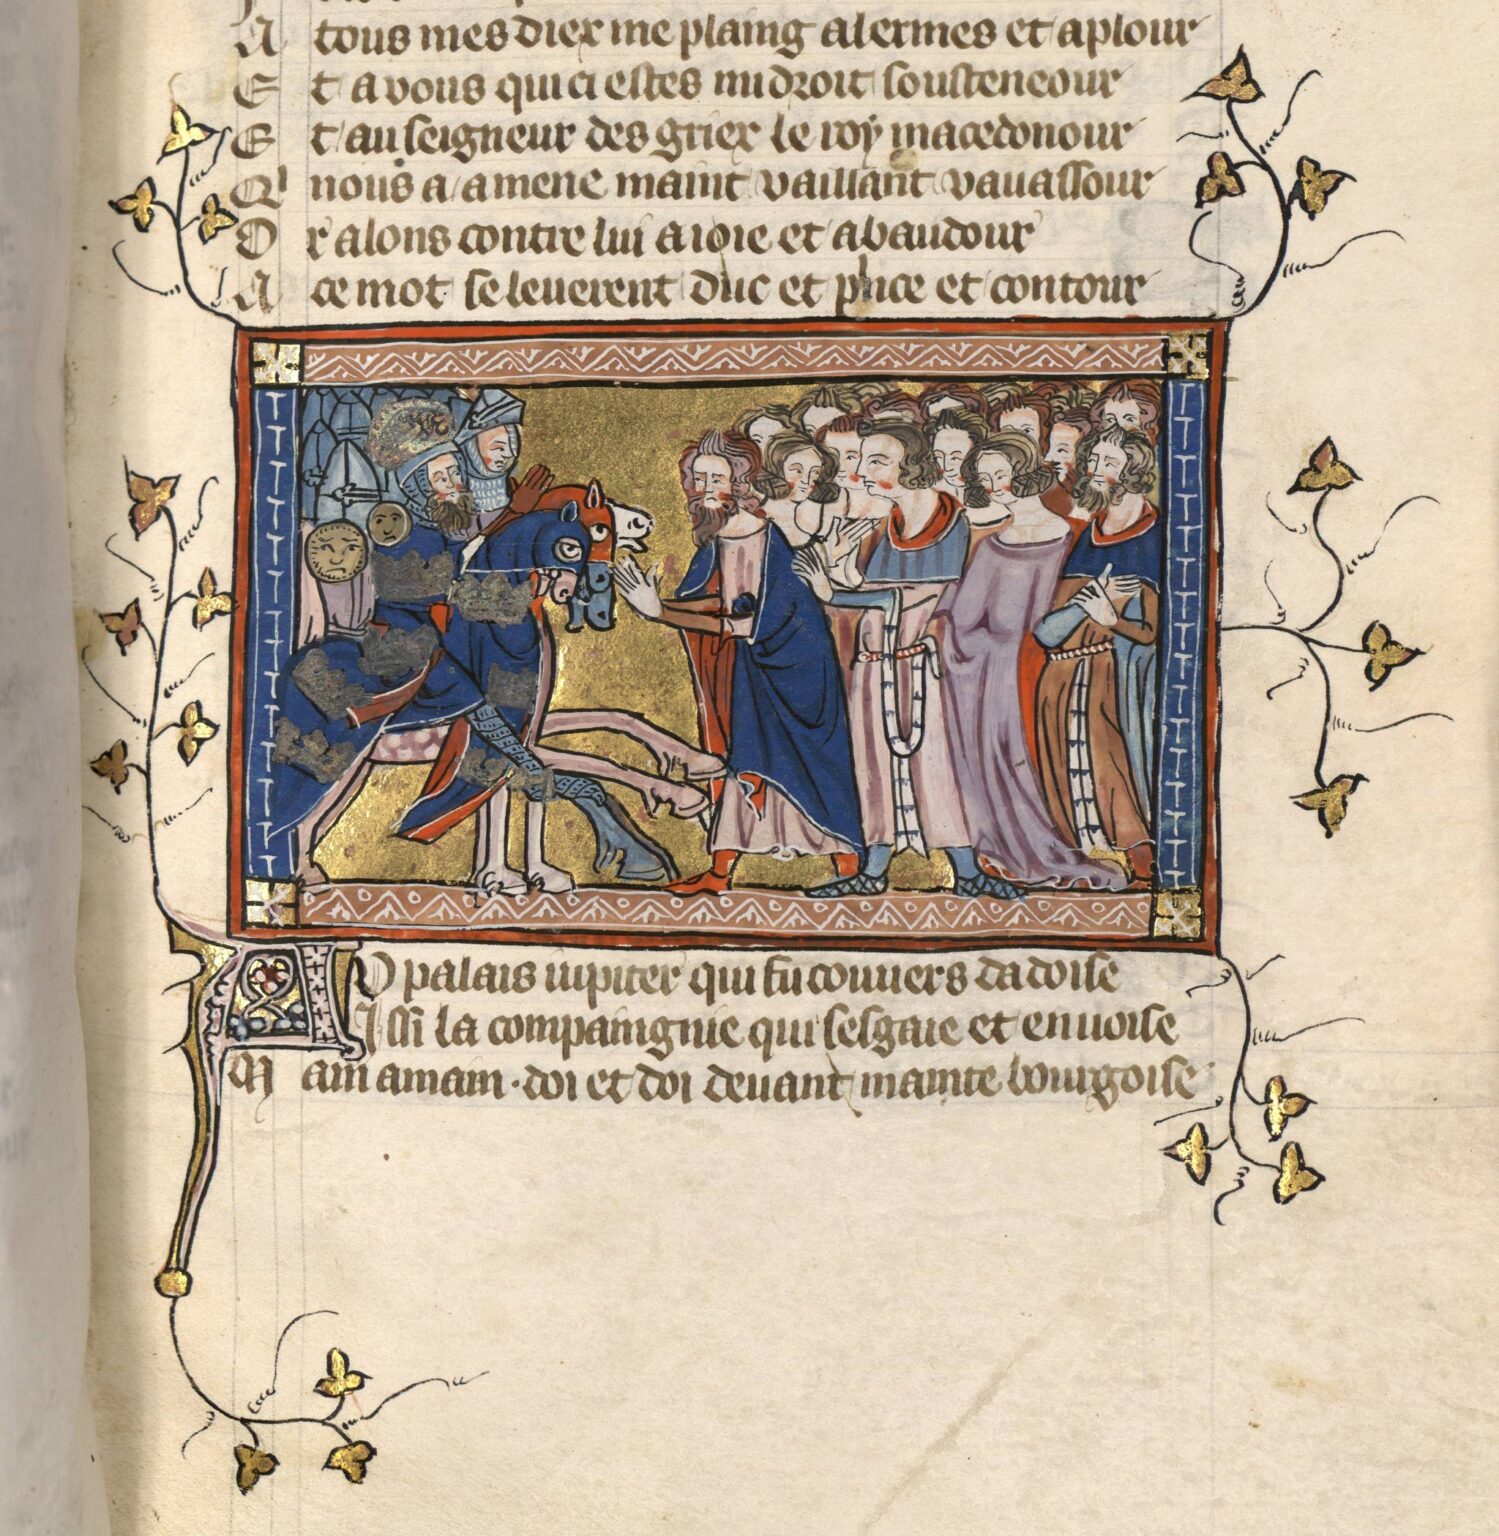 A tous mes diex me plaing a lermes et a plour
E t a vous qui ci estes mi droit sousteneour
E t au seigneur des griex le roy macedonour
Q' nous a amene maint vaillant vauassour
O r alons contre lui a ioie et a baudour
A ce mot se leuerent duc et pnce et contour
D O palais iupiter qui fu couuers dadoise
I ssi la compaingnie qui sesgaie et enuoise
M ain a main · doi et doi deuant mainte bourgoise